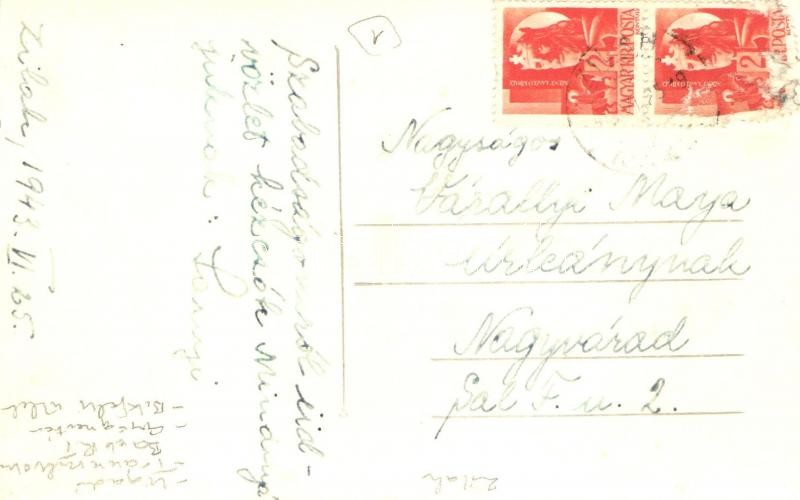 Zilah, 1943. VI. 25.
Szabadságomról üd-
vözlet kézcsók Mindnyá-
juknak: Sanyi
Nagyságos
Várallyi Maya
úrleánynak
Nagyvárad
Sal F. u. 2.
MAGYAR KIR. POSTA
2
MAGYAR KIR. POSTA
2
1
Zilah